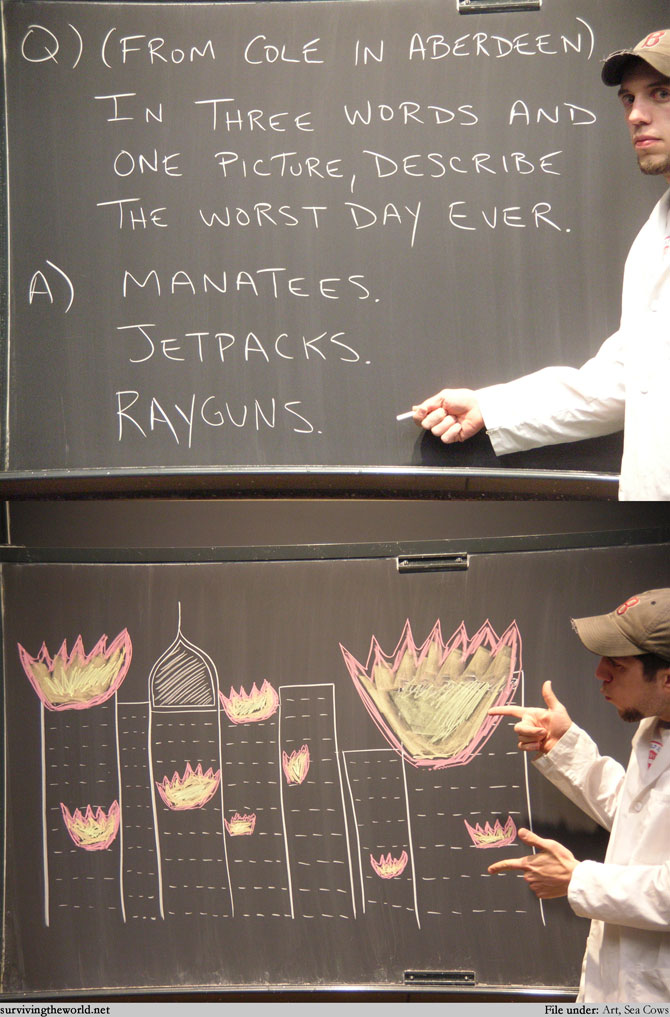 Q) (FROM COLE IN ABERDEEN)
IN THREE WORDS AND
ONE PICTURE, DESCRIBE
THE WORST DAY EVER.
A) MANATEES.
JETPACKS.
RAYGUNS.
B
B
survivingtheworld.net
File under: Art, Sea Cows